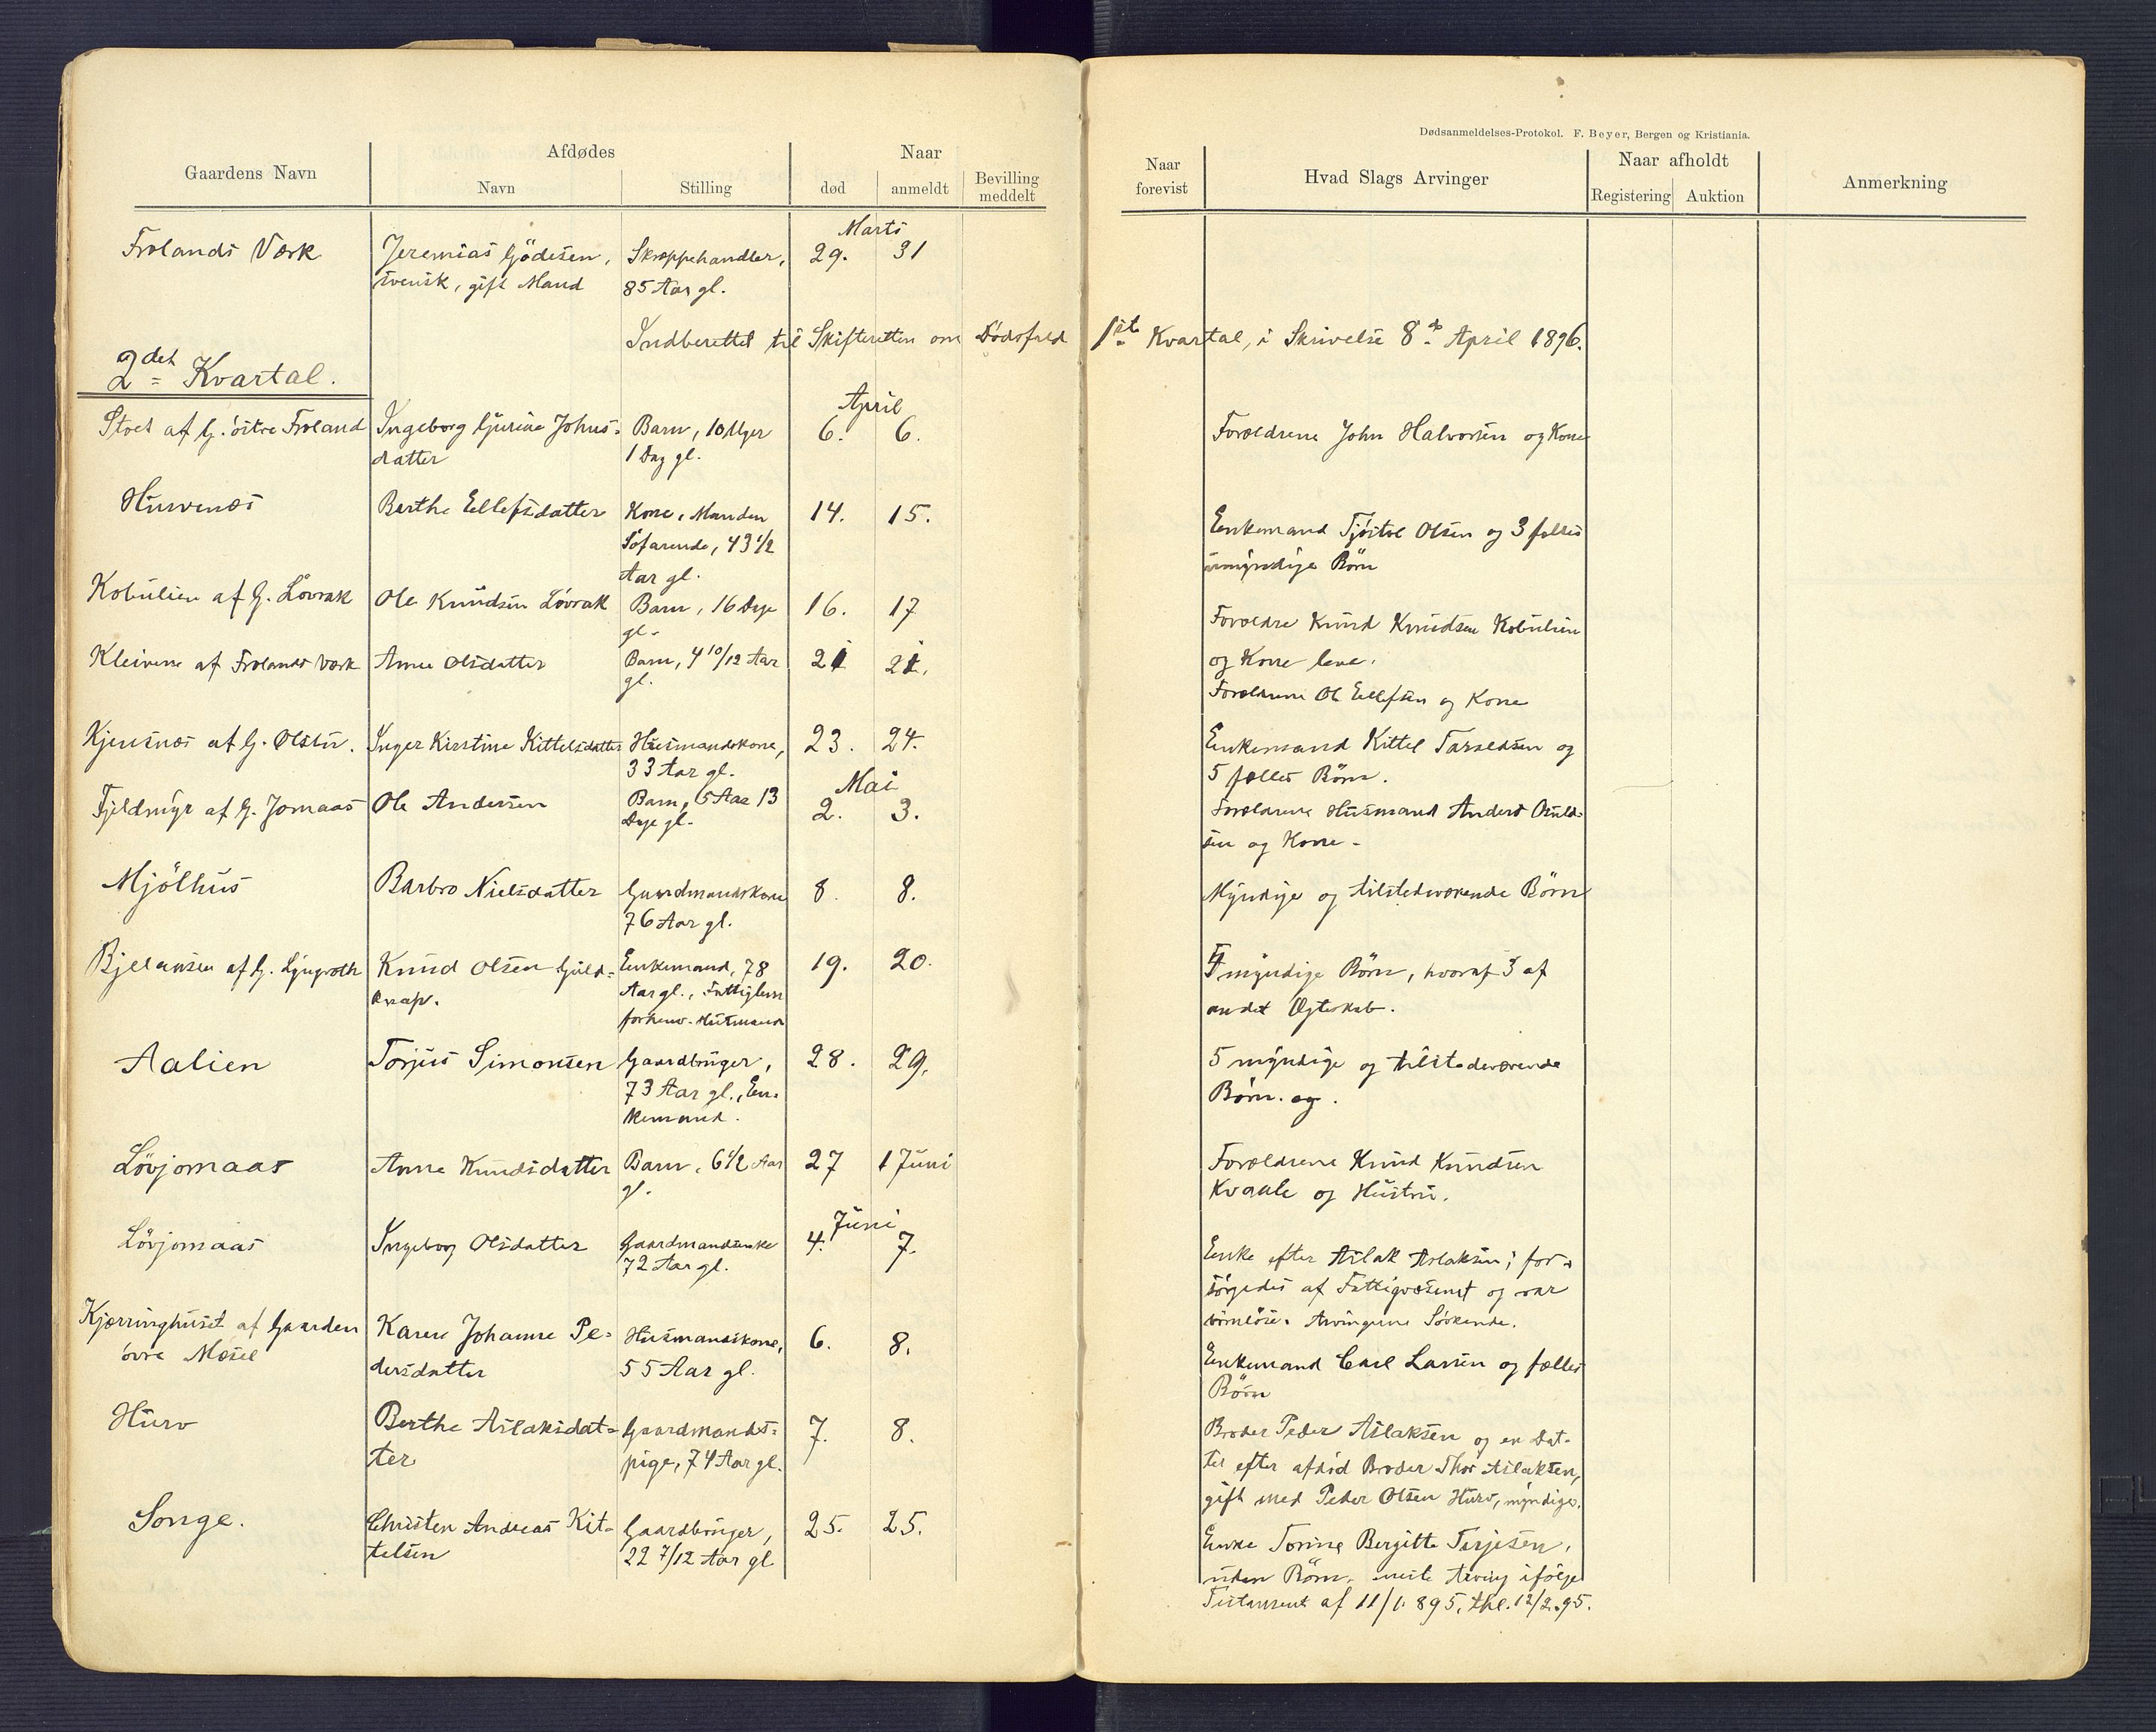 Dødsanmeldelses-Protokol. F. Beyer, Bergen og Kristiania.
Gaardens Navn
Afdødes
Navn
Stilling
Naar
død
anmeldt
Bevilling
meddelt
Naar
forevist
Hvad Slags Arvinger
Naar afholdt
Registering
Auktion
Anmerkning
Marts
Frolands Værk
Jeremias Gödesen,
svensk, gift Mand
Skreppehandler,
85 Aar gl.
29.
31
Indberettet til Skifteretten om Dødsfald 1ste Kvartal, i Skrivelse 8de April 1896.
2det Kvartal.
April
Stoet af G. östre Froland
Ingeborg Gurine Johns-
datter
Barn, 10 Uger
1 Dag gl.
6.
6.
Forældrene John Halvorsen og Kone
Hurvenæs
Berthe Ellefsdatter
Kone, Manden
Söfarende, 43 1/2
Aar gl.
14.
15.
Enkemand Tjöstol Olsen og 3 fælles
umyndige Börn
Kobulien af G. Lövrak
Ole Knudsen Lövrak
Barn, 16 Dage
gl.
16.
17
Forældre Knud Knudsen Kobulien
og Kone leve.
Kleivene af Frolands Værk
Anne Olsdatter
Barn, 4 10/12 Aar
gl.
21
21.
Forældrene Ole Ellefsen og Kone
Kjensnæs af G.
Inger Kirstine Kittelsdatter
Husmandskone,
33 Aar gl.
23.
24.
Enkemand Kittel Tarjeldsen og
5 fælles Börn.
Mai
Fjeldmyr af G. Jomaas
Ole Andersen
Barn, 5 Aar 13
Dage gl.
2.
3.
Forældrene Husmand Anders Osulds-
sen og Kone.
Mjölhus
Barbro Nielsdatter
Gaardmandskone
76 Aar gl.
8.
8.
Myndige og tilstedeværende Börn
Bjellansen af G. Lyngroth
Knud Olsen Guld-
knap.
Enkemand, 78
Aar gl., Fattiglem
forhenv. Husmand
19.
20.
myndige Börn, hvoraf 3 af
andet Ægteskab.
Aalien
Torjus Simonsen
Gaardbruger,
73 Aar gl., En-
kemand.
28.
29.
5 myndige og tilstedeværende
Börn. og.
Lövjomaas
Anne Knudsdatter
Barn, 6 1/2 Aar
gl.
27
1 Juni
Forældrene Knud Knudsen
Kvaale og Hustru.
Juni
Lövjomaas
Ingeborg Olsdatter
Gaardmandsenke
72 Aar gl.
4.
7.
Enke efter Aslak Aslaksen; for-
sörgedes af Fattigvæsenet og var
barnlös. Arvingerne Söskende.
Kjærringhuset af Gaarden
övre Mæsel
Karen Johanne Pe-
dersdatter
Husmandskone,
55 Aar gl.
6.
8.
Enkemand Carl Larsen og fælles
Börn
Hurv
Berthe Aslaksdat-
ter
Gaardmands-
pige, 74 Aar gl.
7.
8.
Broder Peder Aslaksen og en Dat-
ter efter afdöd Broder Thor Aslaksen,
gift med Peder Olsen Hurv, myndige.
Songe.
Christen Andreas Kit-
telsen
Gaardbruger,
22 7/12 Aar gl
25.
25.
Enke Torine Bergitte Terjesen,
uden Börn, eneste Arving ifölge
Testament af 11/1. 895, thl. 12/2. 95.